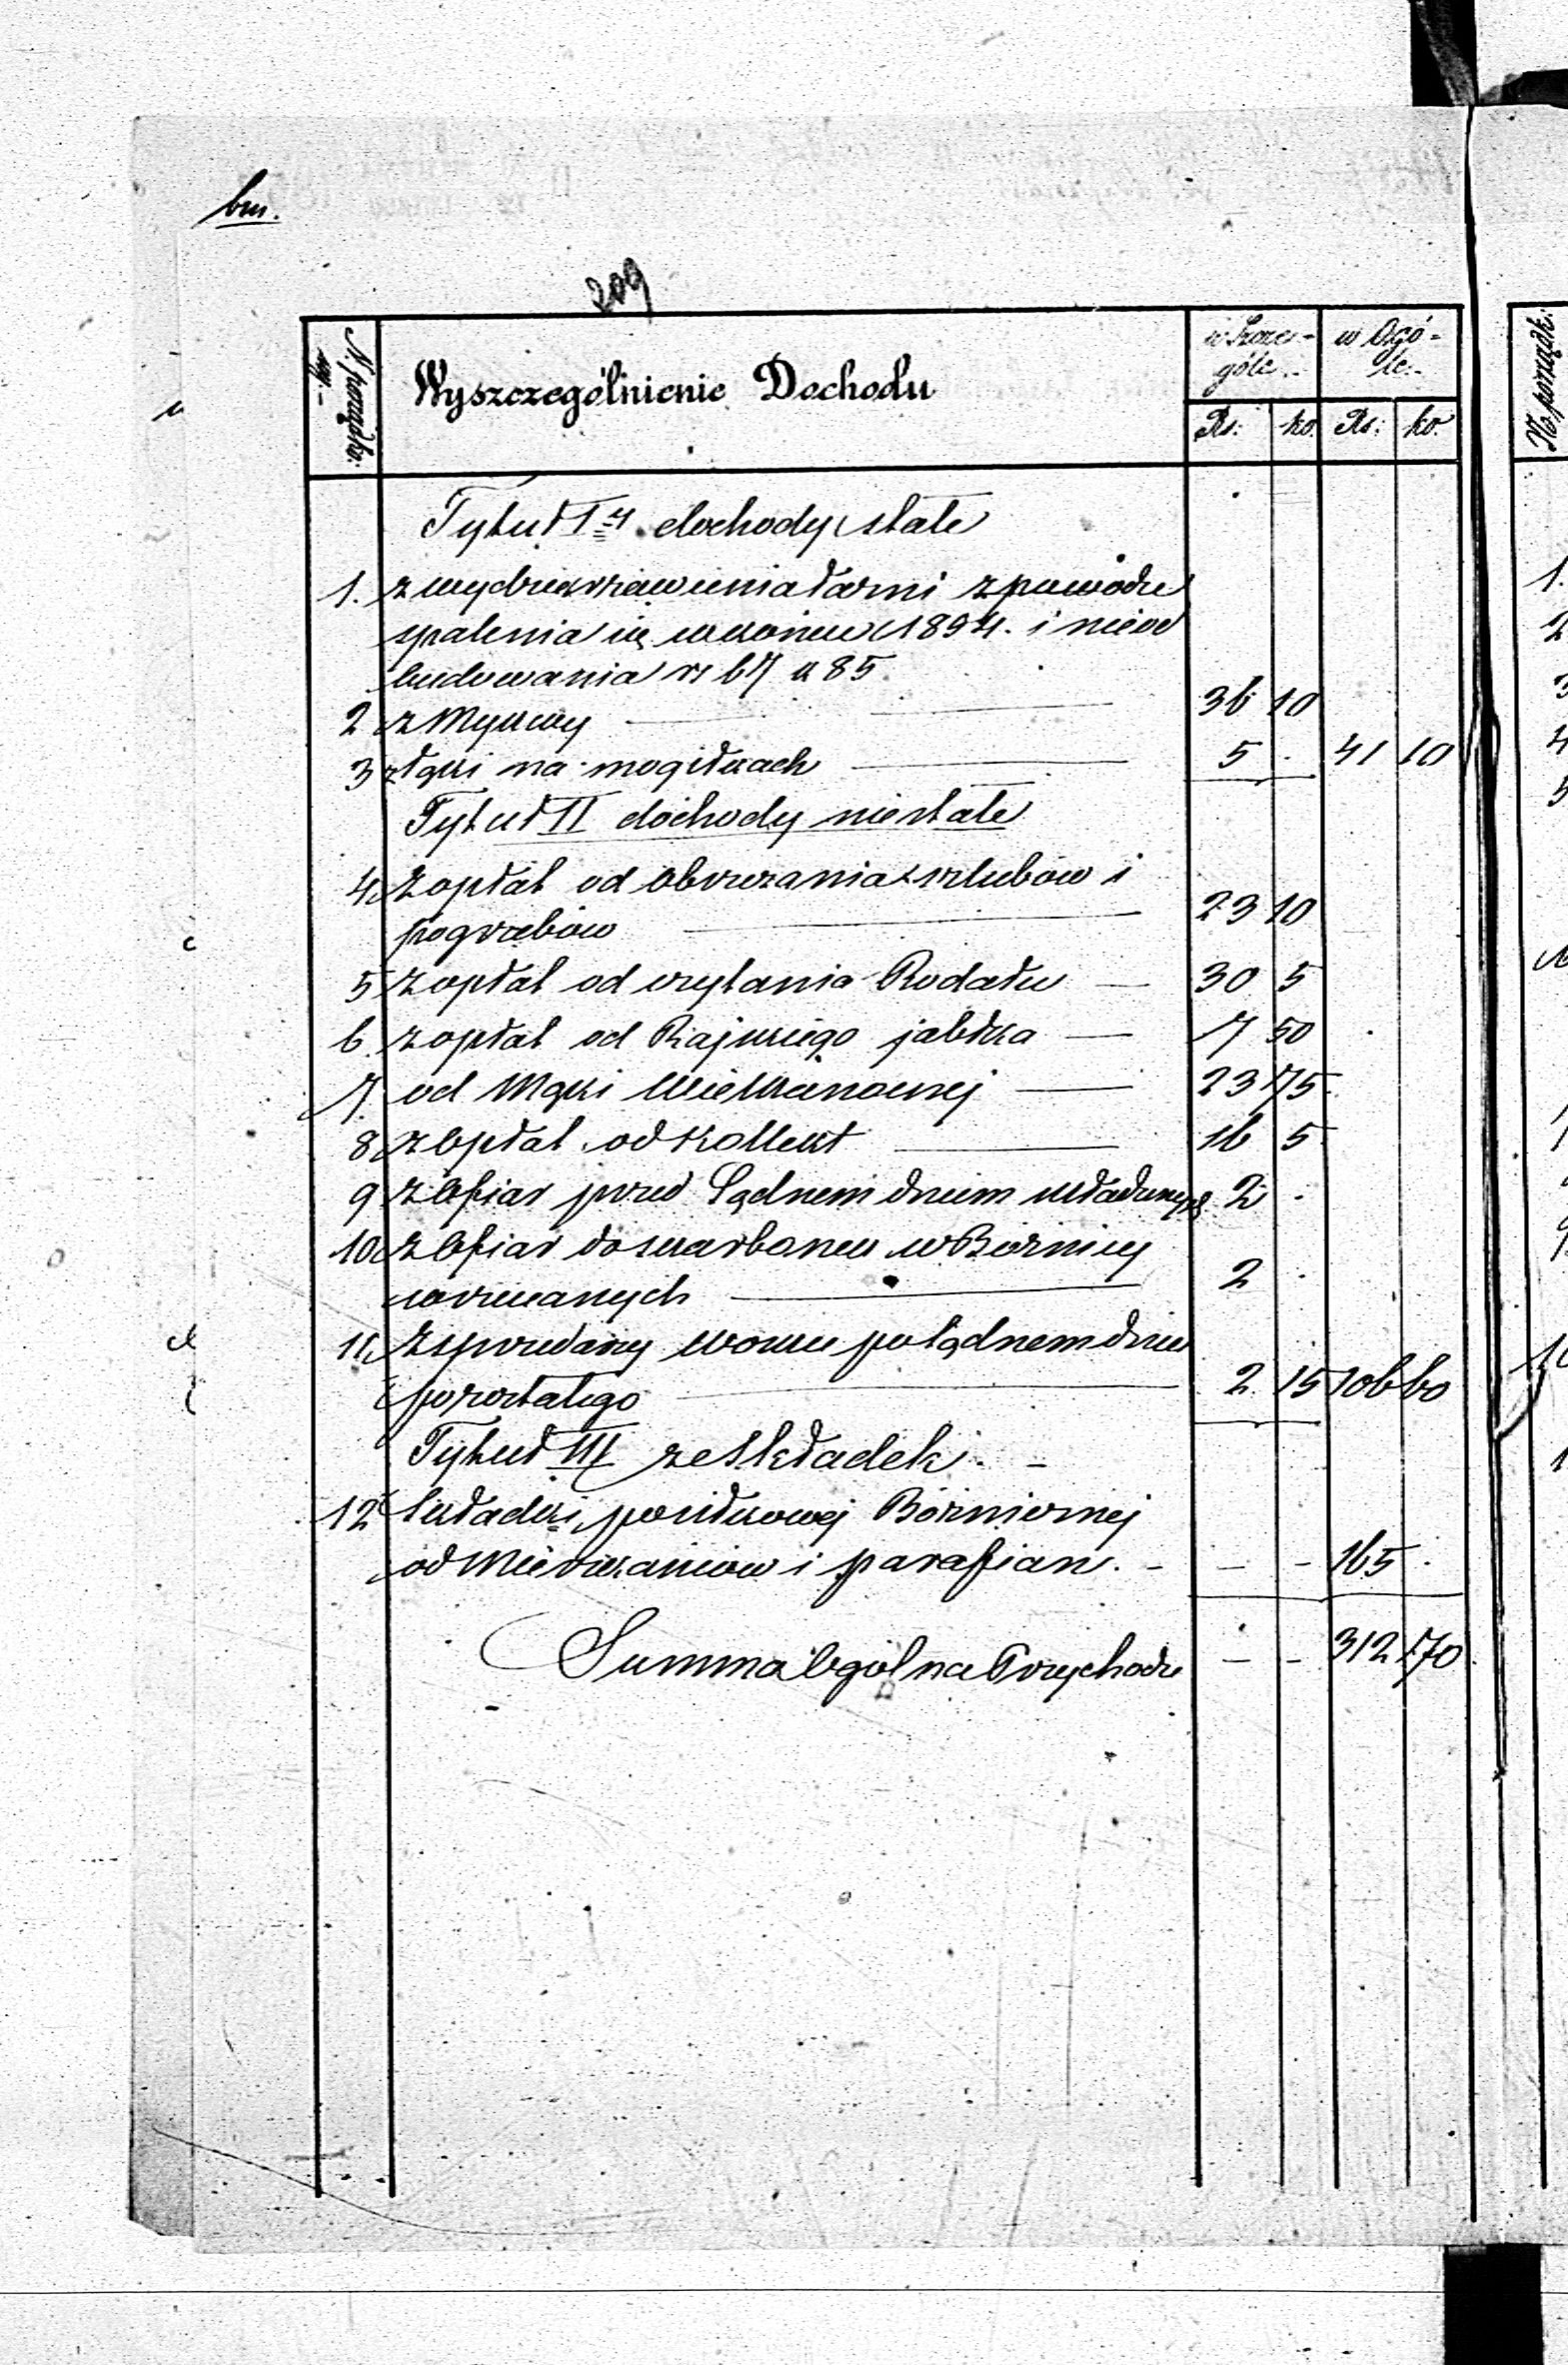 bm.
209
N. porządko: wy.–
Wyszczególnienie Dochodu
w Szcze-
góle.
w Ogó-
le.
Rs: ko. Rs: ko.
Tytuł I-y dochody stałe
1. z wydzierżawienia łaźni z powodu
spalenia się w końcu 1894. i nieod
budowania rs 67 k 85
2 z Mykwy — 36 10
3 z łąki na mogiłkach — 5 . 41 10
Tytuł II dochody niestałe
4 Z opłat od obrzezania szlubów i
pogrzebów — 23 10
5 Z opłat od czytania Rodału — 30 5
6. z opłat od Rajskiego jabłka — 7 50
7. od Mąki Wielkanocnej — 23 75
8 z Opłat od Kollekt — 16 5
9 z Ofiar przed Sądnem dniem składanych 2 .
10 z Ofiar do skarbonek w Bóżnicy
wrzucanych — 2 .
11 Z sprzedaży wosku po Sądnem dniu
pozostałego — 2 15 106 60
Tytuł III ze Składek. –
12 Składki posiłkowej Bóżnicznej
od Mieszkańców i parafian. – – – 165 .
Summa Ogólna Przychodu – – 312 70
Nr. porządk.
1.
2
3
4
5